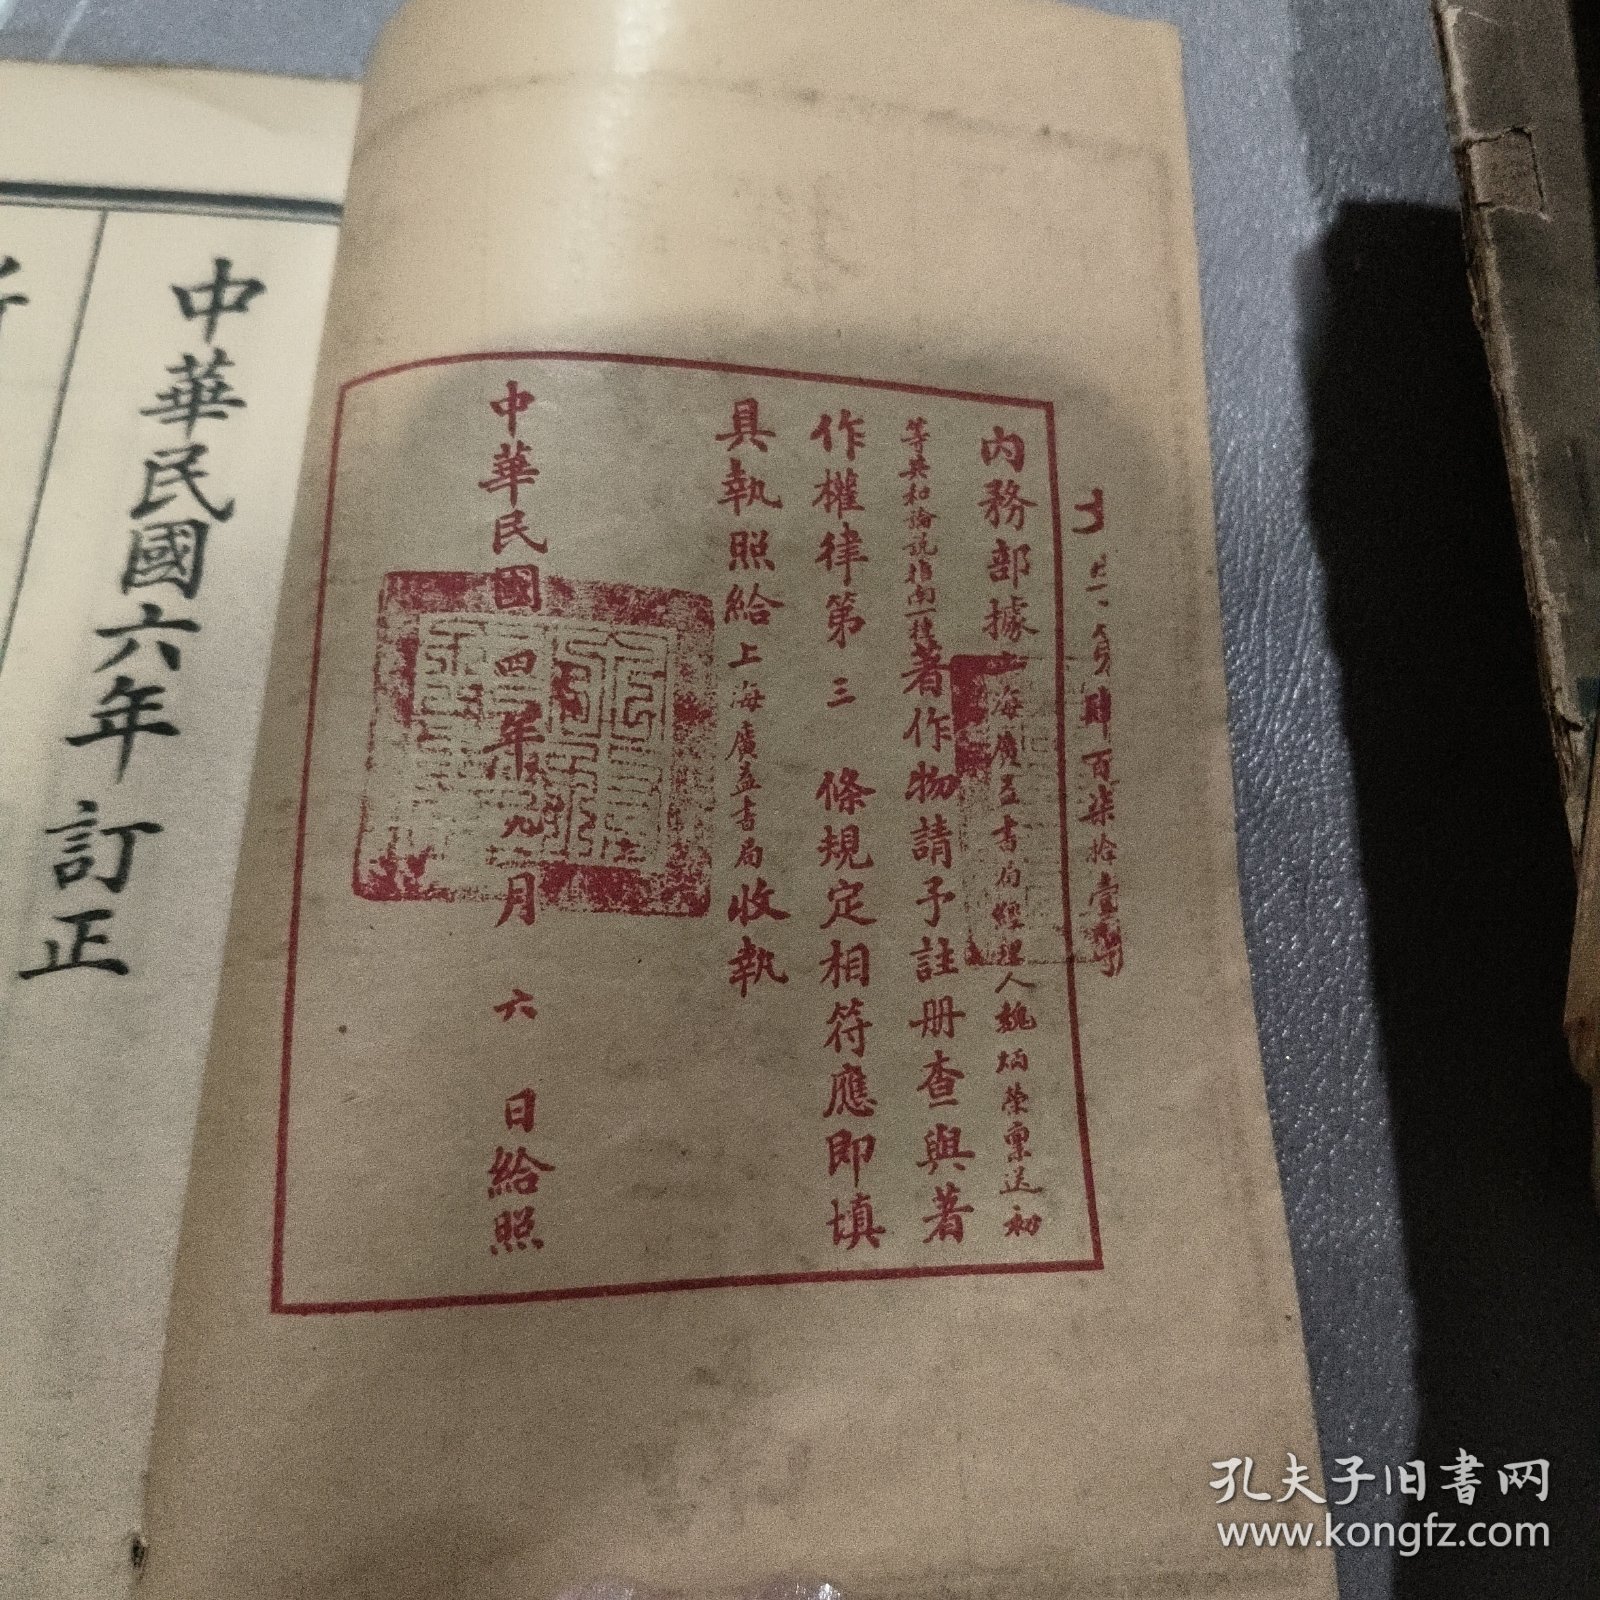 肆百柒拾壹
內務部據上海廣益書局經理人魏炳榮稟送初
等共和論說指南一種著作物請予註册查與著
作權律第三條規定相符應即填
具執照給上海廣益書局收執
中華民國四年九月六日給照
中華民國六年訂正
孔夫子旧书网
www.kongfz.com